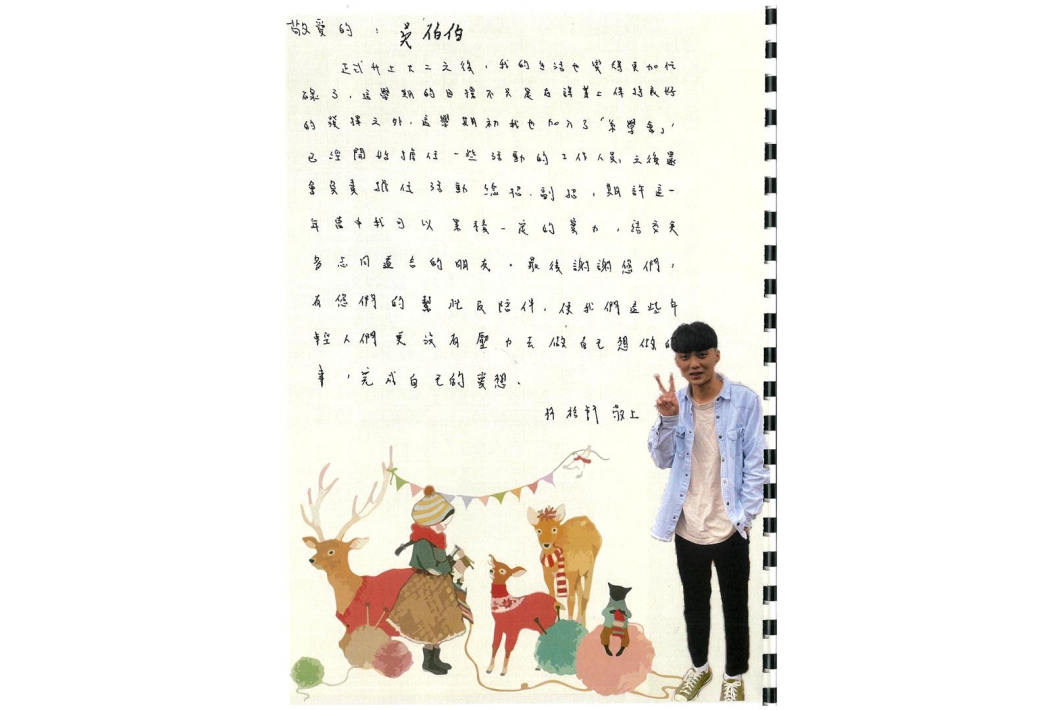 敬愛的：吳伯伯
正式升上大二之後，我的生活也變得更加忙
碌了，這學期的目標不只是在課業上保持良好
的發揮之外，這學期初我也加入了「系學會」，
已經開始擔任一些活動的工作人員，之後還
會負責擔任活動總招、副招，期許這一
年當中我可以累積一定的實力，結交更
多志同道合的朋友。最後謝謝您們，
有您們的幫忙及陪伴，使我們這些年
輕人們更沒有壓力去做自己想做的
事，完成自己的夢想。
敬上